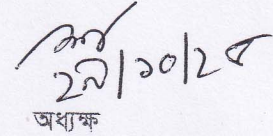 ২৯/১০/২৫
অধ্যক্ষ